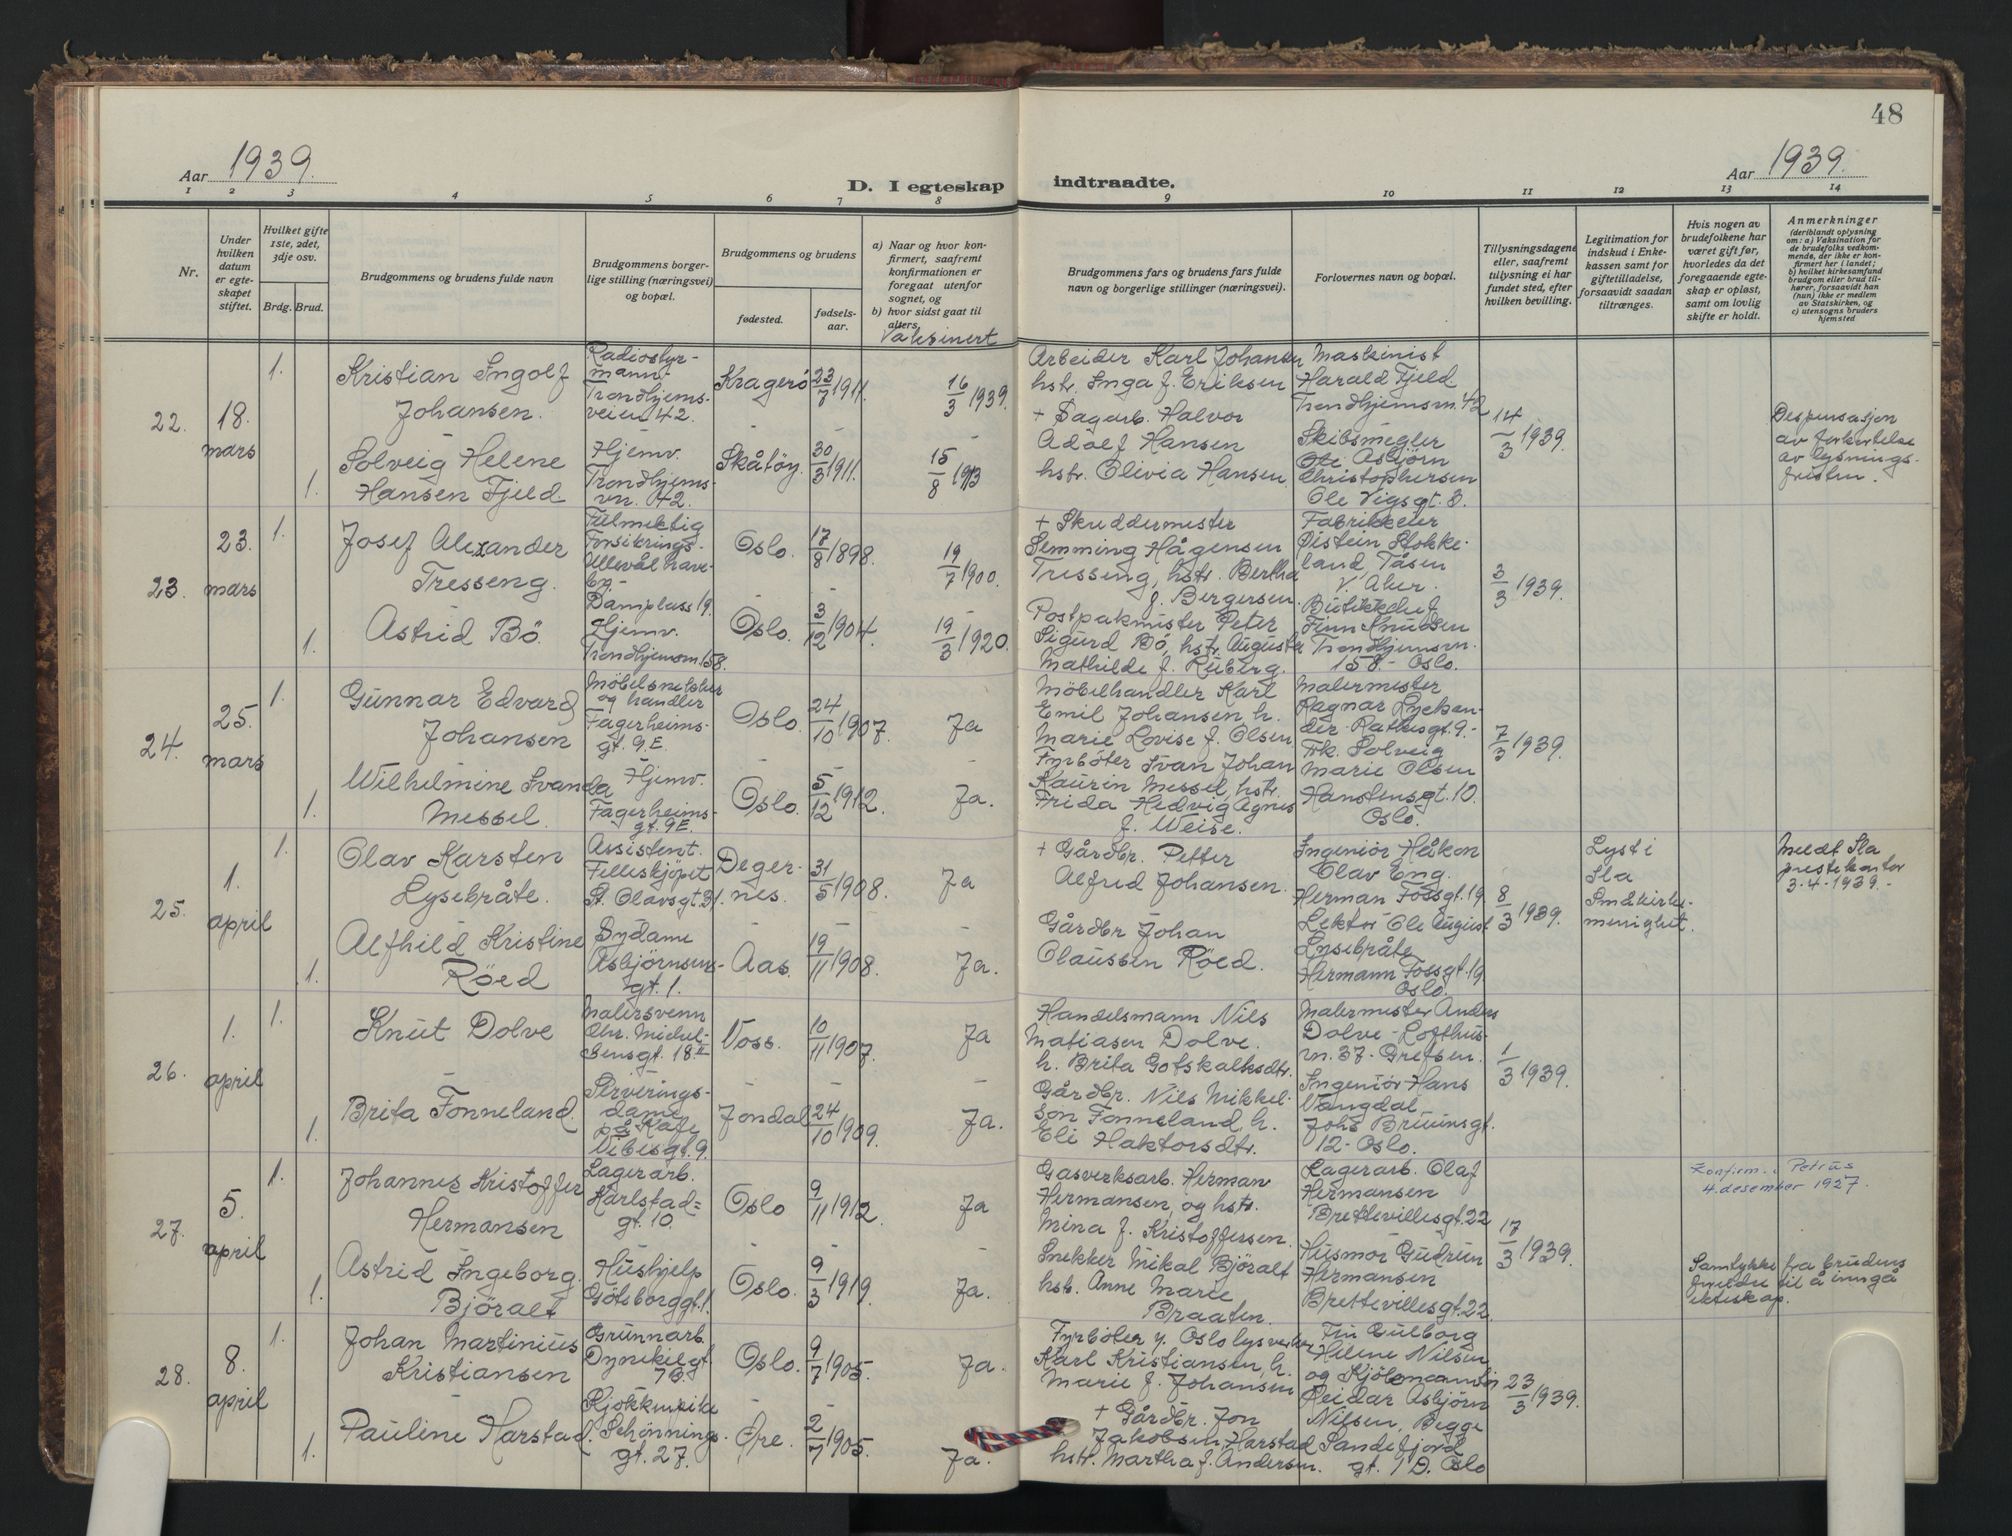 48
Aar 1939.
D. I egteskap indtraadte.
Aar 1939.
1 2 3 4 5 6 7 8 9 10 11 12 13 14
Nr.
Under
hvilken
datum
er egte-
skapet
stiftet.
Hvilket gifte
1ste, 2det,
3dje osv.
Brdg. Brud.
Brudgommens og brudens fulde navn
Brudgommens borger-
lige stilling (næringsvei)
og bopæl.
Brudgommens og brudens
fødested.
fødsels-
aar.
a) Naar og hvor kon-
firmert, saafremt
konfirmationen er
foregaat utenfor
sognet, og
b) hvor sidst gaat til
alters.
Vaksinert
Brudgommens fars og brudens fars fulde
navn og borgerlige stillinger (næringsvei).
Forlovernes navn og bopæl.
Tillysningsdagene
eller, saafremt
tillysning ei har
fundet sted, efter
hvilken bevilling.
Legitimation for
indskud i Enke-
kassen samt for
giftetilladelse,
forsaavidt saadan
tiltrænges.
Hvis nogen av
brudefolkene har
været gift før,
hvorledes da det
foregaaende egte-
skap er opløst,
samt om lovlig
skifte er holdt.
Anmerkninger
(deriblandt oplysning
om: a) Vaksination for
de brudefolks vedkom-
mende, der ikke er kon-
firmert her i landet;
b) hvilket kirkesamfund
brudgom eller brud til-
hører, forsaavidt han
(hun) ikke er medlem
av Statskirken, og
c) utensogns bruders
hjemsted
22.
18.
mars
1.
Kristian Ingolf
Johansen.
Radiostyr-
mann.
Trondhjems-
veien 42.
Kragerø
23/7 1911.
16/3 1939.
Arbeider Karl Johansen
hstr. Inga f. Eriksen
Maskinist
Harald Fjeld
Trondhjemsvn. 42
14/3 1939.
Dispensasjon
av forkortelse
av lysnings-
fristen.
1.
Solveig Helene
Hansen Fjeld
Hjemv.
Trondhjems-
vn. 42.
Skåtøy.
30/3 1911.
15/8 1913
+ Sagarb. Halvor
Adolf Hansen
hstr. Olivia Hansen
Skibsmegler
Ole Asbjörn
Christophersen
Ole Vigsgt. 3.
23.
23.
mars
1.
Josef Alexander
Tresseng.
Fullmektig
Forsikrings-
Ullevål have-
by-
Damplass 19.
Oslo.
17/8 1898.
19/7 1900.
+ Skreddermester
Semming Hågensen
Tresseng, hstr. Bertha
f. Bergersen.
Fabrikkeier
Øistein Stokke-
land, Tåsen
V. Aker.
3/3 1939.
1.
Astrid Bö.
Hjemv.
Trondhjemsvn. 158.
Oslo.
3/12 1904.
19/3 1920.
Postpakmester Peter
Sigurd Bö, hstr. Auguste
Mathilde f. Ruberg.
Butikkchef
Finn Knudsen
Trondhjemsvn.
158.- Oslo.
24.
25.
mars
1.
Gunnar Edvard
Johansen
Möbelsnekker
og handler
Fagerheims-
gt. 9.E.
Oslo.
24/10 1907.
Ja
Möbelhandler Karl
Emil Johansen h.
Marie Lovise f. Olsen
Malermester
Ragnar Lycken-
der. Rathkesgt. 9.-
7/3 1939.
1.
Wilhelmine Svanda
Messel.
Hjemv.
Fagerheims-
gt. 9E.
Oslo
5/12 1912.
Ja.
Fyrböter Svan Johan
Kaurin Messel, hstr.
Frida Hedvig Agnes
f. Weise.
Frk. Solveig
Marie Olsen
Hanstensgt. 10.
Oslo.
25.
1.
april
1.
Olav Karsten
Lysebråte.
Assistent.
Felleskjöpet
St. Olavsgt. 31.
Deger-
nes.
31/5 1908.
Ja
+ Gårdbr. Petter
Alfred Johansen.
Ingeniør Håkon
Olav Eng.
Herman Fossgt. 19
8/3 1939.
Lyst i
Ila
Småkirke-
menighet.
Meldt Ila
prestekontor
3-4-1939.-
1.
Alfhild Kristine
Röed
Sydame
Asbjörnsens-
gt. 1.
Aas.
19/11 1908.
Ja.
Gårdbr. Johan
Claussen Röed.
Lektor Ole August
Lysebråte
Hermann Fossgt. 19
Oslo.
26.
1.
april
1.
Knut Dolve
Malersvenn
Chr. Michel-
sensgt. 18 II
Voss.
10/11 1907.
Ja
Handelsmann Nils
Matiasen Dolve.
h. Brita Gotskalksdtr.
Malermester Anders
Dolve - Lofthus-
vn. 37- Grefsen.
1/3 1939.
1.
Brita Fonneland
Serverings-
dame
på Kafe
Vibesgt. 9.
Jondal
24/10 1909.
Ja.
Gårdbr. Nils Mikkel-
son Fonneland, h.
Eli Haktorsdtr.
Ingeniør Hans
Vangdal
Johs Bruunsgt.
12- Oslo.
27.
5.
april
1.
Johannes Kristoffer
Hermansen
Lagerarb.
Karlstad=
gt. 10.
Oslo
9/11 1912.
Ja
Gasverksarb. Herman
Hermansen, og hstr.
Mina f. Kristoffersen.
Lagerarb. Olaf
Hermansen
Brettevillesgt. 22
17/3 1939.
Konfirm. i Petrus
4. desember 1927.
1.
Astrid Ingeborg
Björalt
Hushjelp
Götsborggt. 1.
Oslo.
9/3 1919.
Ja.
Snekker Mikal Björalt
hstr. Anne Marie
Braaten.
Husmor Gudrun
Hermansen
Brettevillesgt. 22.
Samtykke fra brudens
foreldre til å inngå
ekteskap.
28.
8.
april
1.
Johan Martinius
Kristiansen
Grunnarb.
Dynekilgt.
7B.
Oslo.
9/7 1905.
Ja.
Fyrböter v. Oslo lysverker
Karl Kristiansen, h.
Marie f. Johansen
Fru Gulborg
Helene Nilsen
og
Reidar Asbjörn
Nilsen, Begge
Sandefjord
gt. 1 D. Oslo
23/3 1939.
1.
Pauline Harstad.
Kjökkenpike
Schönnings-
gt. 27.
Øre.
2/7 1905.
Ja.
+ Gårdbr. Jon
Jakobsen Harstad
hstr. Martha f. Andersen.